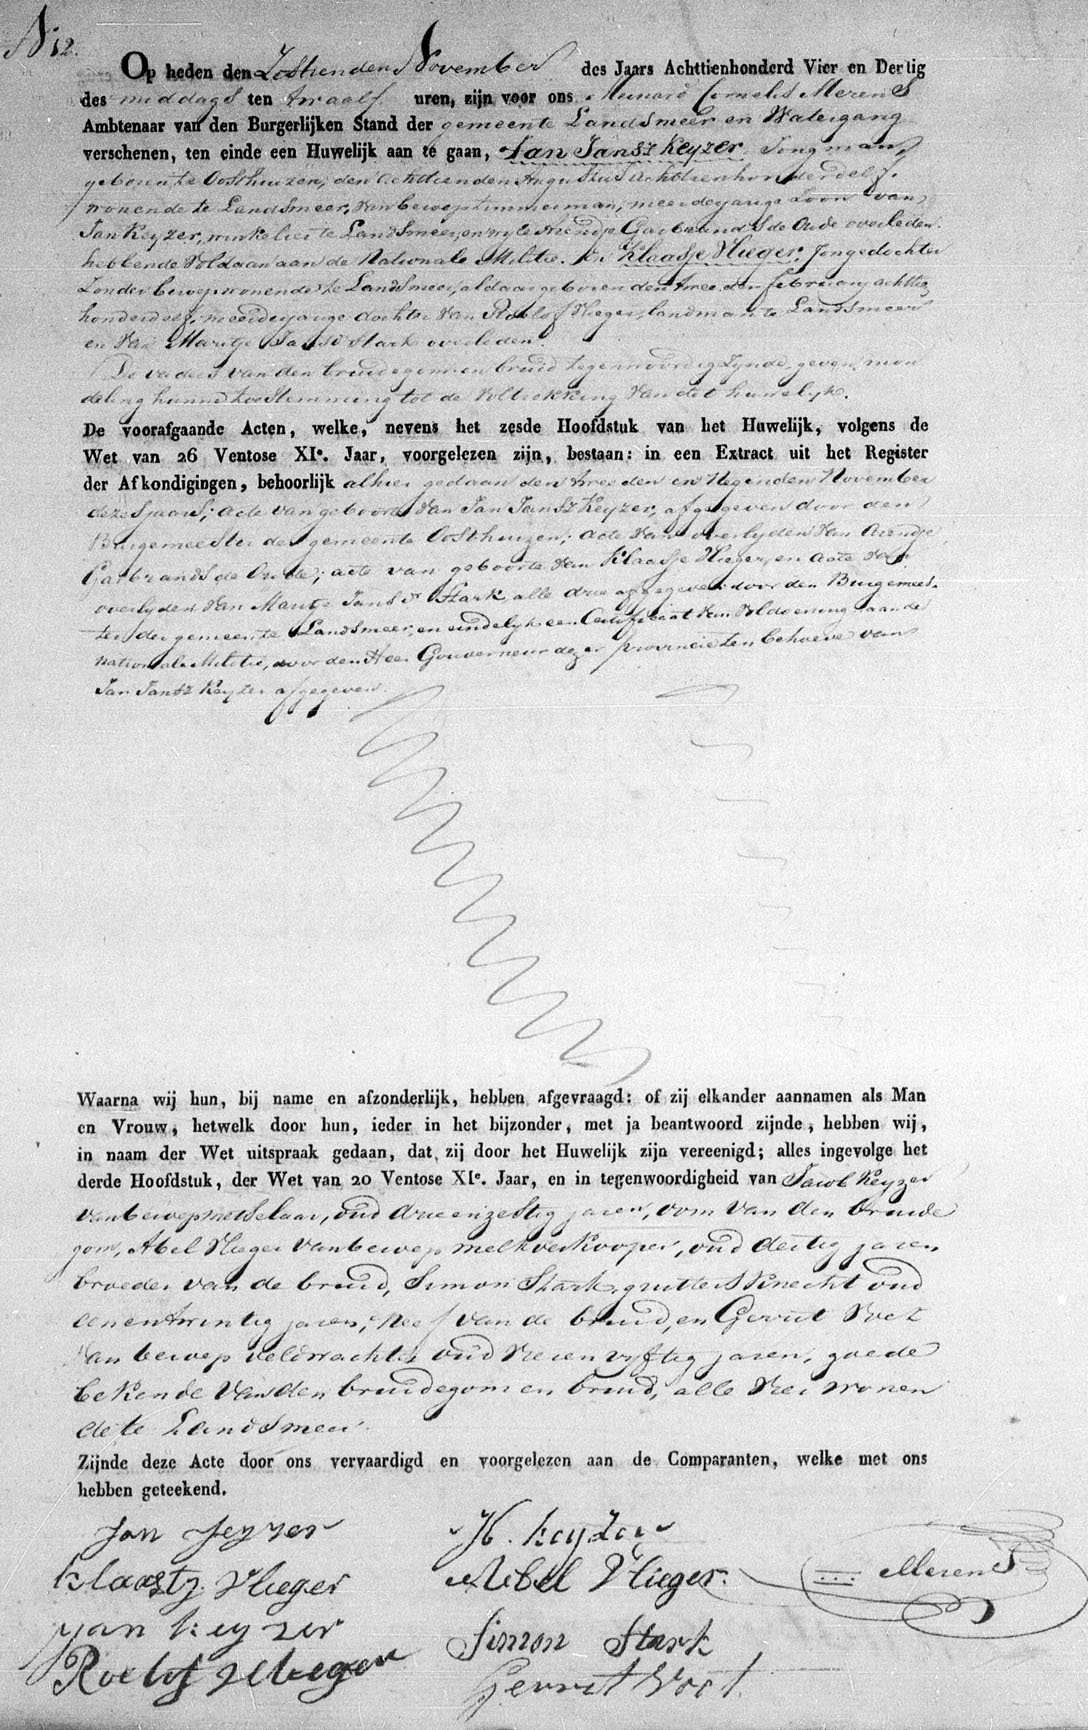 N 12.
Op heden den Zestienden November des Jaars Achttienhonderd Vier en Dertig
des middags ten twaalf uren, zijn voor ons Meinard Cornelis Merens
Ambtenaar van den Burgerlijken Stand der gemeente Landsmeer en Watergang
verschenen, ten einde een Huwelijk aan te gaan, Jan Jansz Keyzer, Jongman,
geboren te Oosthuizen, den achttienden Augustus achttienhonderd elf,
wonende te Landsmeer, van beroep timmerman, meerderjarige Zoon van
Jan Keyzer, winkelier te Landsmeer, en wyle Arendje Garbrands de Oude overleden.
hebbende voldaan aan de Nationale Militie. En Klaasje Vlieger, Jongedochter
Zonder beroep wonende te Landsmeer, aldaar geboren den twee den february achttien
honderd, meerderjarige dochter van Roelof Vlieger, landman te Landsmeer
en van Maritje Jans Stark overleden.
De vaders van den bruidegom en bruid tegenwoordig zynde, geven mon
deling hunne toestemming tot de voltrekking van dit huwelyk.
De voorafgaande Acten, welke, nevens het zesde Hoofdstuk van het Huwelijk, volgens de
Wet van 26 Ventose XIe. Jaar, voorgelezen zijn, bestaan: in een Extract uit het Register
der Afkondigingen, behoorlijk alhier gedaan den tweeden en Negenden November
dezes jaars; acte van geboorte van Jan Jansz Keyzer, afgegeven door den
Burgemeester der gemeente Oosthuizen; acte van overlyden van Arendje
Garbrands de Oude; acte van geboorte van Klaasje Vlieger, en acte van
overlyden van Maritje Jans Stark, alle drie afgegeven door den Burgemees
ter der gemeente Landsmeer, en eindelyk een Certificaat van voldoening aan de
nationale Militie, door den Heer Gouverneur dezer provincie ten behoeve van
Jan Jansz Keyzer afgegeven.
Waarna wij hun, bij name en afzonderlijk, hebben afgevraagd: of zij elkander aannamen als Man
en Vrouw, hetwelk door hun, ieder in het bijzonder, met ja beantwoord zijnde, hebben wij,
in naam der Wet uitspraak gedaan, dat zij door het Huwelijk zijn vereenigd; alles ingevolge het
derde Hoofdstuk, der Wet van 20 Ventose XIe. Jaar, en in tegenwoordigheid van Jacob Keyzer
van beroep metselaar, oud drie en zestig jaren, oom van den bruide
gom, Abel Vlieger van beroep melkverkooper, oud dertig jaren
broeder van de bruid, Simon Stark, grutters knecht oud
een en twintig jaren, Neef van de bruid, en Gerrit Voet
van beroep veldwachter oud vier en vyftig jaren, goede
bekende van den bruidegom en bruid, alle vier wonen
de te Landsmeer.
Zijnde deze Acte door ons vervaardigd en voorgelezen aan de Comparanten, welke met ons
hebben geteekend.
Jan Keyzer
J K. keyzer
Klaastj. Vlieger
Abel Vlieger.
Merens
Jan keyzer
Simon Stark
Roelof Vlieger
Gerrit Voet